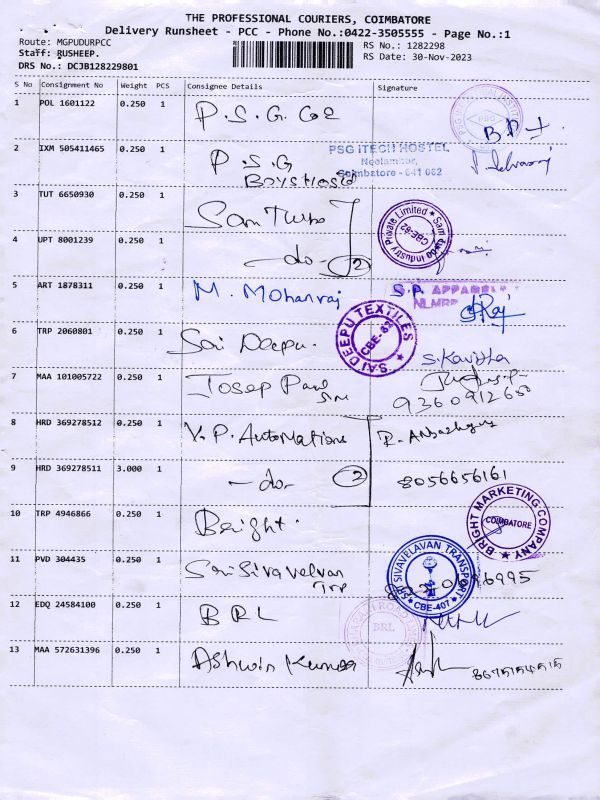 THE PROFESSIONAL COURIERS, COIMBATORE
Delivery Runsheet - PCC - Phone No.:0422-3505555 - Page No.:1
Route: MGPUDURPCC
RS No.: 1282298
Staff: RUSHEEP.
RS Date: 30-Nov-2023
DRS No.: DCJB128229801
S No Consignment No Weight PCS Consignee Details Signature
1 POL 1601122 0.250 1 P.S.G. PSG B.P.
2 IXM 505411465 0.250 1 P.S.G Boys Hostel
PSG ITECH HOSTEL
Neelambur,
Coimbatore - 641 062
3 TUT 6650930 0.250 1 Sam Turbo
Sam Turbo Industry Private Limited CBE-62
4 UPT 8001239 0.250 1 -do- 2
5 ART 1878311 0.250 1 M. Mohanraj S.P. APPAREL Raj
6 TRP 2060801 0.250 1 Sai Deepu. S. Kavitha
SAI DEEPU TEXTILES CBE-62
7 MAA 101005722 0.250 1 Josep Paul
8 HRD 369278512 0.250 1 V.P. Automations
9 HRD 369278511 3.000 1 -do- 2 8056656161
10 TRP 4946866 0.250 1 Bright.
BRIGHT MARKETING COMPANY COIMBATORE
11 PVD 304435 0.250 1 Sri Sivavelvan
SRI SIVAVELAVAN TRANSPORT CBE-407
12 EDQ 24584100 0.250 1 BRL BRL
13 MAA 572631396 0.250 1 Ashwin Kumar